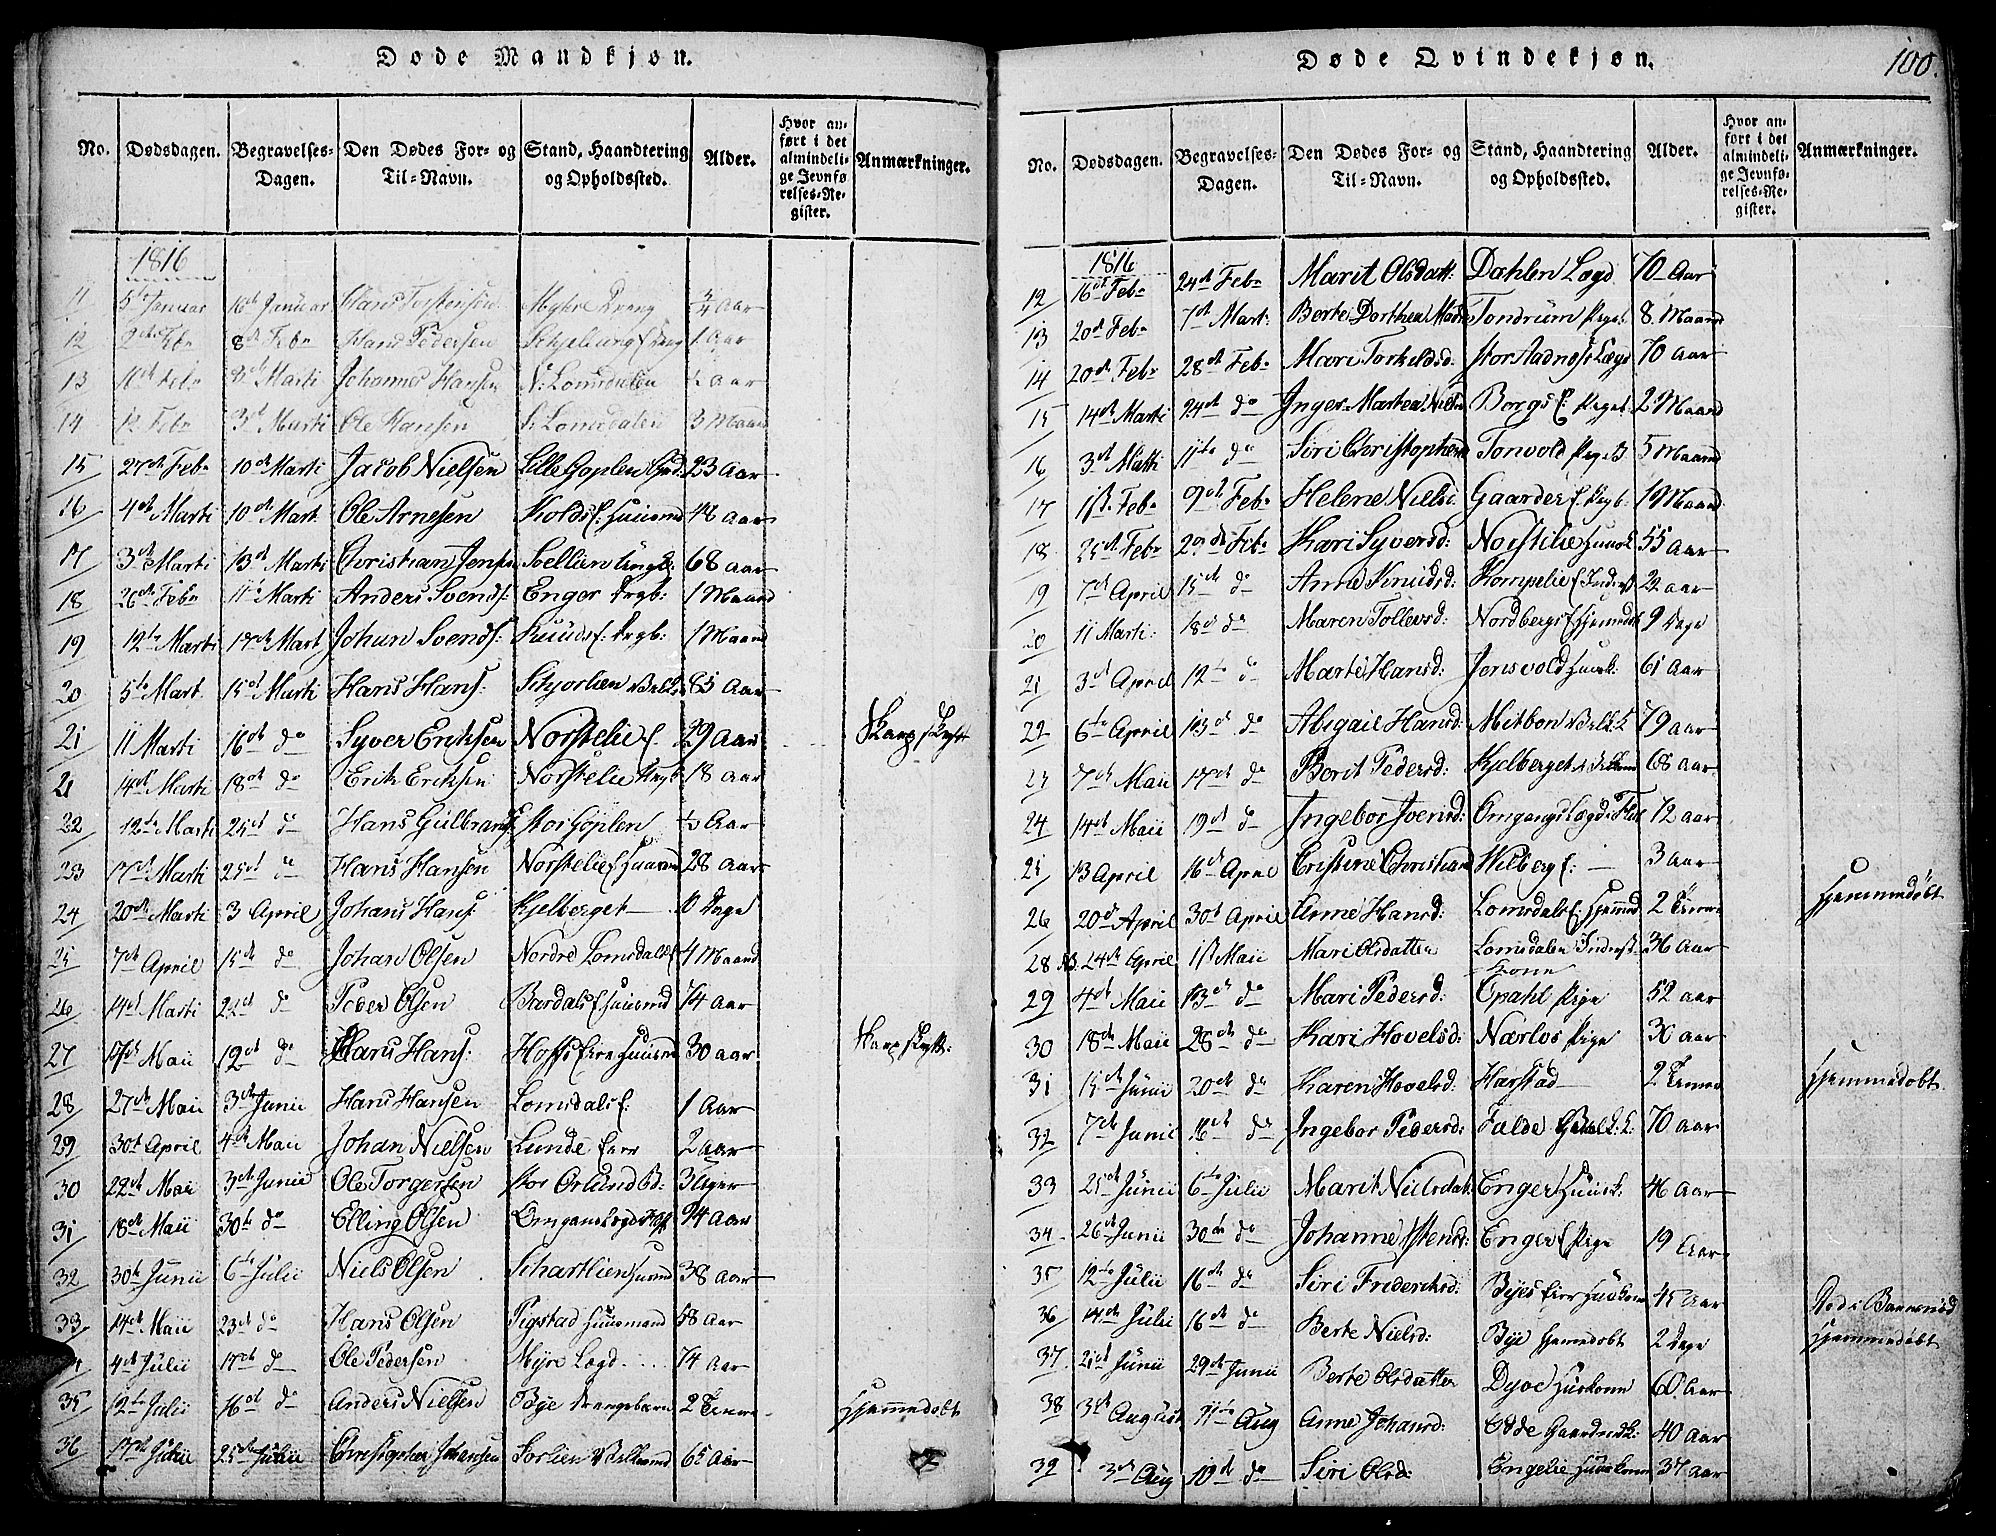 Døde Mandkjøn.
No. Dødsdagen. Begravelses-Dagen. Den Dødes For- og Til-Navn. Stand, Haandtering og Opholdssted. Alder. Hvor anført i det almindelige Jevnførelses-Register. Anmærkninger.
1816
11 5te Januar 10de Januar Hans Torstensen Myhre Dreng 3/4 Aar
12 Feb. 8de Feb. Hans Pedersen 1 Aar
13 Feb. 8de Marti Johannes Hansen N. Lomsdalen ½ Aar
14 12 Feb. 3de Marti Ole Hansen S. Lomsdalen 3 Maan
15 27de Feb. 10de Marti Jacob Nielsen Lille Goplen 23 Aar
16 4de Marti 10de Mart. Ole Arnesen Kolds E. Huusmd 48 Aar
17 3de Marti 13de Marti Christian Jensen Sollien 68 Aar
18 26de Feb. 11te Marti Anders Svends: Enger Drgb: 1 Maaned
19 12te Marti 17de Mart Johan Svends: Knuds E. Drgb: 1 Maaned
20 5te Mart. 15de Marti Hans Hans: Schjorlien 85 Aar
21 11 Marti 16de do Syver Eriksen Norstelie E. 29 Aar Skarpskytt
21 14de Marti 18de do Erik Eriksen Norstelie 18 Aar
22 12te Marti 25de do Hans Gulbrands: Stor Goplen ½ Aar
23 17de Marti 25de do Hans Hansen Norstelie E. Huusm 28 Aar
24 20de Marti 3 April Johans Hans: Kjelberget 10 Dage
25 7de April 15de do Johan Olsen Nordre Lomsdals E. 4 Maaned
26 14de Marti 22de do Peder Olsen Bardals E. Huusmd 74 Aar
27 Maii 12de do Hans Hans: Hoffs Eier Huusmd 30 Aar Skarpskytt:
28 27de Maii 3de Junii Hans Hansen Lomsdals E: 1 Aar
29 30de April 4de Maii Johan Nielsen Lunde Eier 2 Aar
30 22de Maii 3de Junii Ole Torgersen Stor Onlund 3 Uger
31 18de Maii 30te do Elling Olsen Omgangslægd 94 Aar
32 30te Junii 6te Julii Niels Olsen Schartlien Huusmd 38 Aar
33 14de Maii 23de do Hans Olsen Pigstad Huusmand 58 Aar
4de Julii 17de do Ole Pedersen Myre Lægd 74 Aar
35 12te Julii 16de do Anders Nielsen Bye Drengebarn 2 Timer Hjemmedøbt
36 17de Julii 25de Julii Christopher Johansen Sorlien 65 Aar

Døde Qvindekjøn.
100.
No. Dødsdagen. Begravelses-Dagen. Den Dødes For- og Til-Navn. Stand, Haandtering og Opholdssted. Alder. Hvor anført i det almindelige Jevnførelses-Register. Anmærkninger.
1816
12 16de Feb. 24de Feb. Marit Olsdatt: Dæhlen Lægd 70 Aar
13 20de Feb. 7de Mart: Berte Dorthea Tondrum Pige 8 Maaned
14 20de Feb. 28de Feb. Mari Torkeldsd: Stor Aadnæs Lægd 70 Aar
15 14de Marti 24de do Inger Marthea Niels Borgs E. Pige 2 Maaned
16 3de Marti 11te do Siri Christophersd Tonvold 5 Maaned
17 1ste Feb. 9de Feb. Helene Niels: Gaarder E. Pigb: 1 Maaned
18 25de Feb. Feb. Kari Syversd: Norstelie Huusk 55 Aar
19 7de April 15de do Anne Knudsd: Kompelie E. Inderst 2 Aar
20 11 Marti 18de do Maren Tollevsd: Nordbergs E. 9 Dage
21 3de April 12te do Marte Hansd: Jonsvold Huusk: 61 Aar
22 6te April 13de do Abigail Hansd: Mitbon 79 Aar
23 7de Maii 17de do Borit Pedersd: Kjelberget 68 Aar
24 14de Maii 19de do Ingebor Joensd: Omgangslægd 72 Aar
25 13 April 16de April Cristine Christians Wilberg E: 3 Aar
26 20de April 30te April Anne Hansd: Lomsdals E. 2 Timer Hjemmedøbt
28 NB. 24de April 1ste Maii Mari Olsdatter Lomsdalen Inderst Kone 36 Aar
29 4de Maii 13de do Mari Pedersd: Opahl Pige 52 Aar
30 18de Maii 28de do Kari Hovelsd: Nærlos Pige 30 Aar
31 15de Junii 20de do Karen Hovelsd: Harstad 2 Timer Hjemmedobt
32 7de Junii 16de do Ingebor Pedersd: Falde 70 Aar
33 25de Junii 6te Julii Marit Nielsdat: Enger Huusk: 46 Aar
34 26de Junii 30te do Johanne Enger E. Pige 19 Aar
35 12te Julii 16de do Siri Fridericksd: Byes Eier Huuskone 45 Aar Død i Barnenød
36 14de Julii 16de do Berte Nielsd: Bye Hjemedobt 2 Dage Hjemmedøbt
37 21de Junii 29de Junii Berte Olsdatter Dyoe Huskone 60 Aar
38 August Aug Anne Johansd: Odde 40 Aar
39 3de Aug 10de do Siri Olsd: Engelie Huuskone 37 Aar